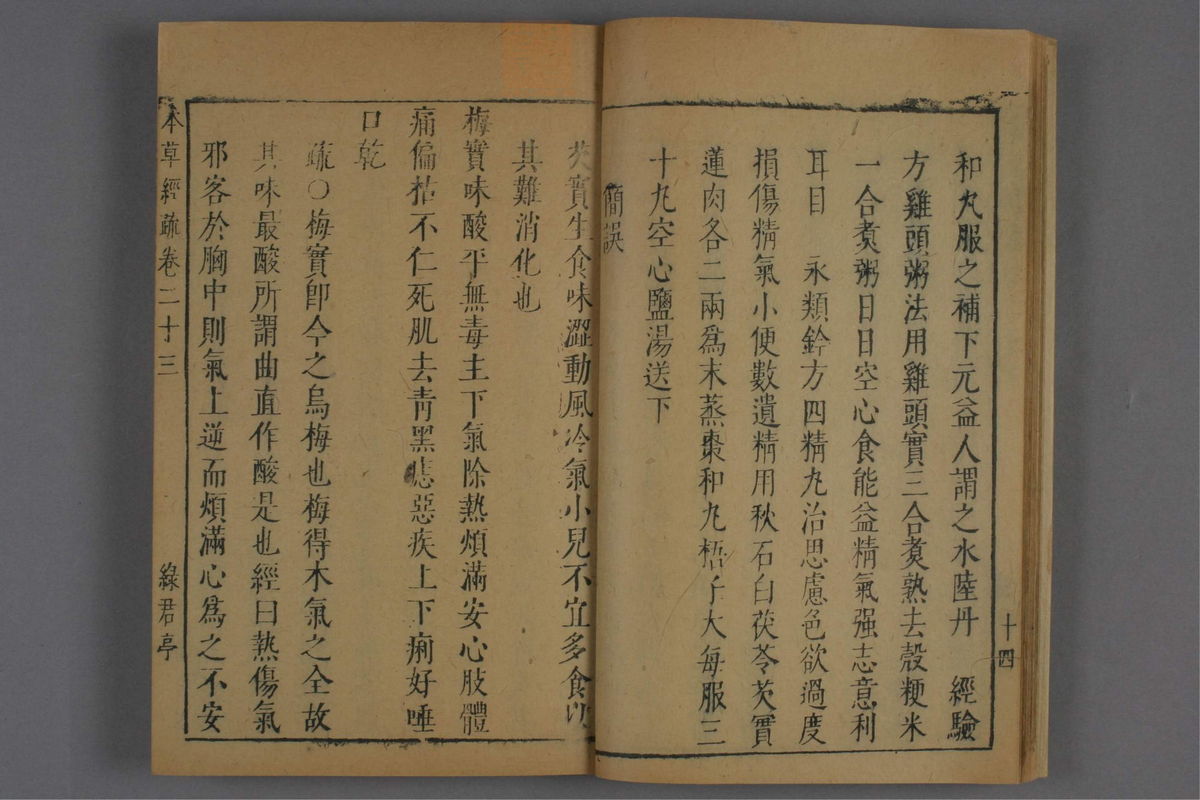 和丸服之補下元益人謂之水陸丹　經驗
方雞頭粥法用雞頭實三合煑熟去殼粳米
一合煑粥日日空心食能益精氣强志意利
耳目　永類鈐方四精丸治思慮色欲過度
損傷精氣小便數遺精用秋石白茯苓芡實
蓮肉各二兩爲末蒸棗和丸梧子大每服三
十丸空心鹽湯送下
簡誤
十四
芡實生食味澀動風冷氣小兒不宜多食以
其難消化也
梅實味酸平無毒主下氣除熱煩滿安心肢體
痛偏枯不仁死肌去靑黑痣惡疾止下痢好唾
口乾
疏○梅實卽今之烏梅也梅得木氣之全故
其味最酸所謂曲直作酸是也經曰熱傷氣
邪客於胸中則氣上逆而煩滿心爲之不安
本草經疏卷二十三
綠君亭